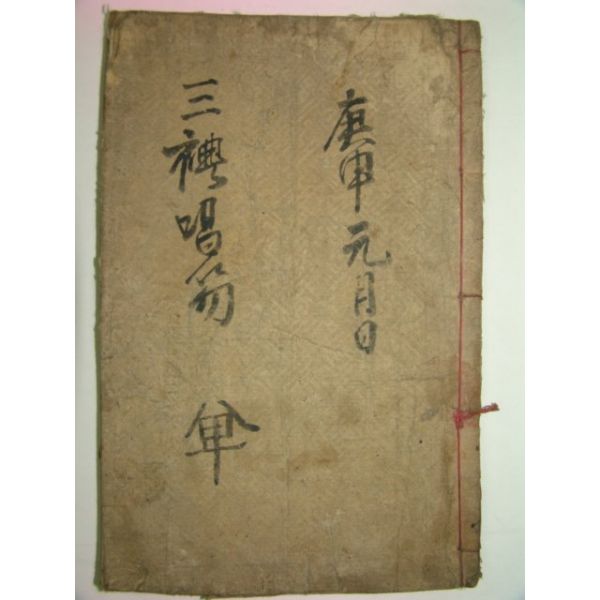 庚申元月日
三禮唱笏